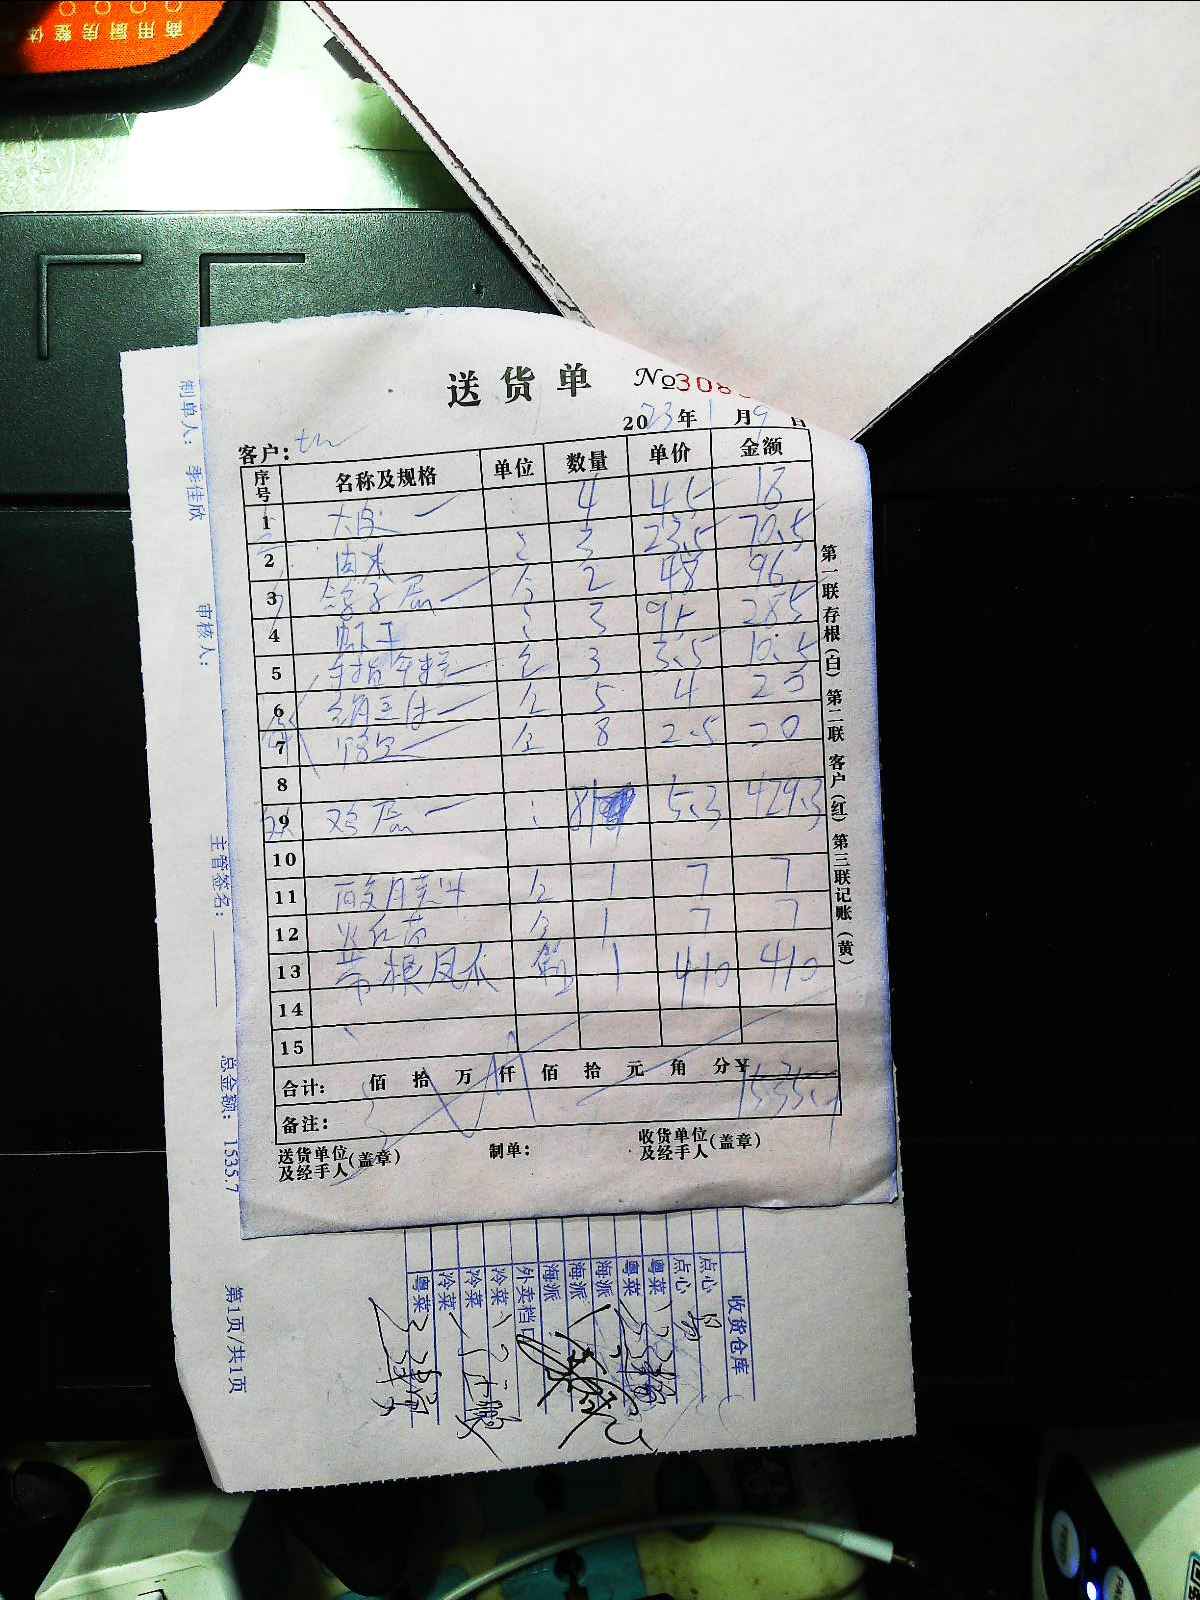 商用厨房整体
送货单 №308
2023年1月9日
客户:
序号 名称及规格 单位 数量 单价 金额
1 大皮 4 4.5 18
2 肉末 3 23.5 70.5
3 鸽子 个 2 48 96
4 虾干 3 95 285
5 手指年糕 包 3 3.5 10.5
6 包 5 4 20
7 包 8 2.5 20
8
9 鸡 81 5.3 429.3
10
11 酸 包 1 7 7
12 1 7 7
13 带根 箱 1 410 410
14
15
合计: 佰 拾 万 仟 佰 拾 元 角 分 ¥
备注:
送货单位及经手人(盖章) 制单: 收货单位及经手人(盖章)
第一联存根(白) 第二联客户(红) 第三联记账(黄)
制单人: 李佳欣
审核人:
主管签名:
总金额: 1535.7
第1页/共1页
收货仓库
点心
点心
粤菜
粤菜
海派
海派
海派
外卖档口
冷菜
冷菜
冷菜
粤菜